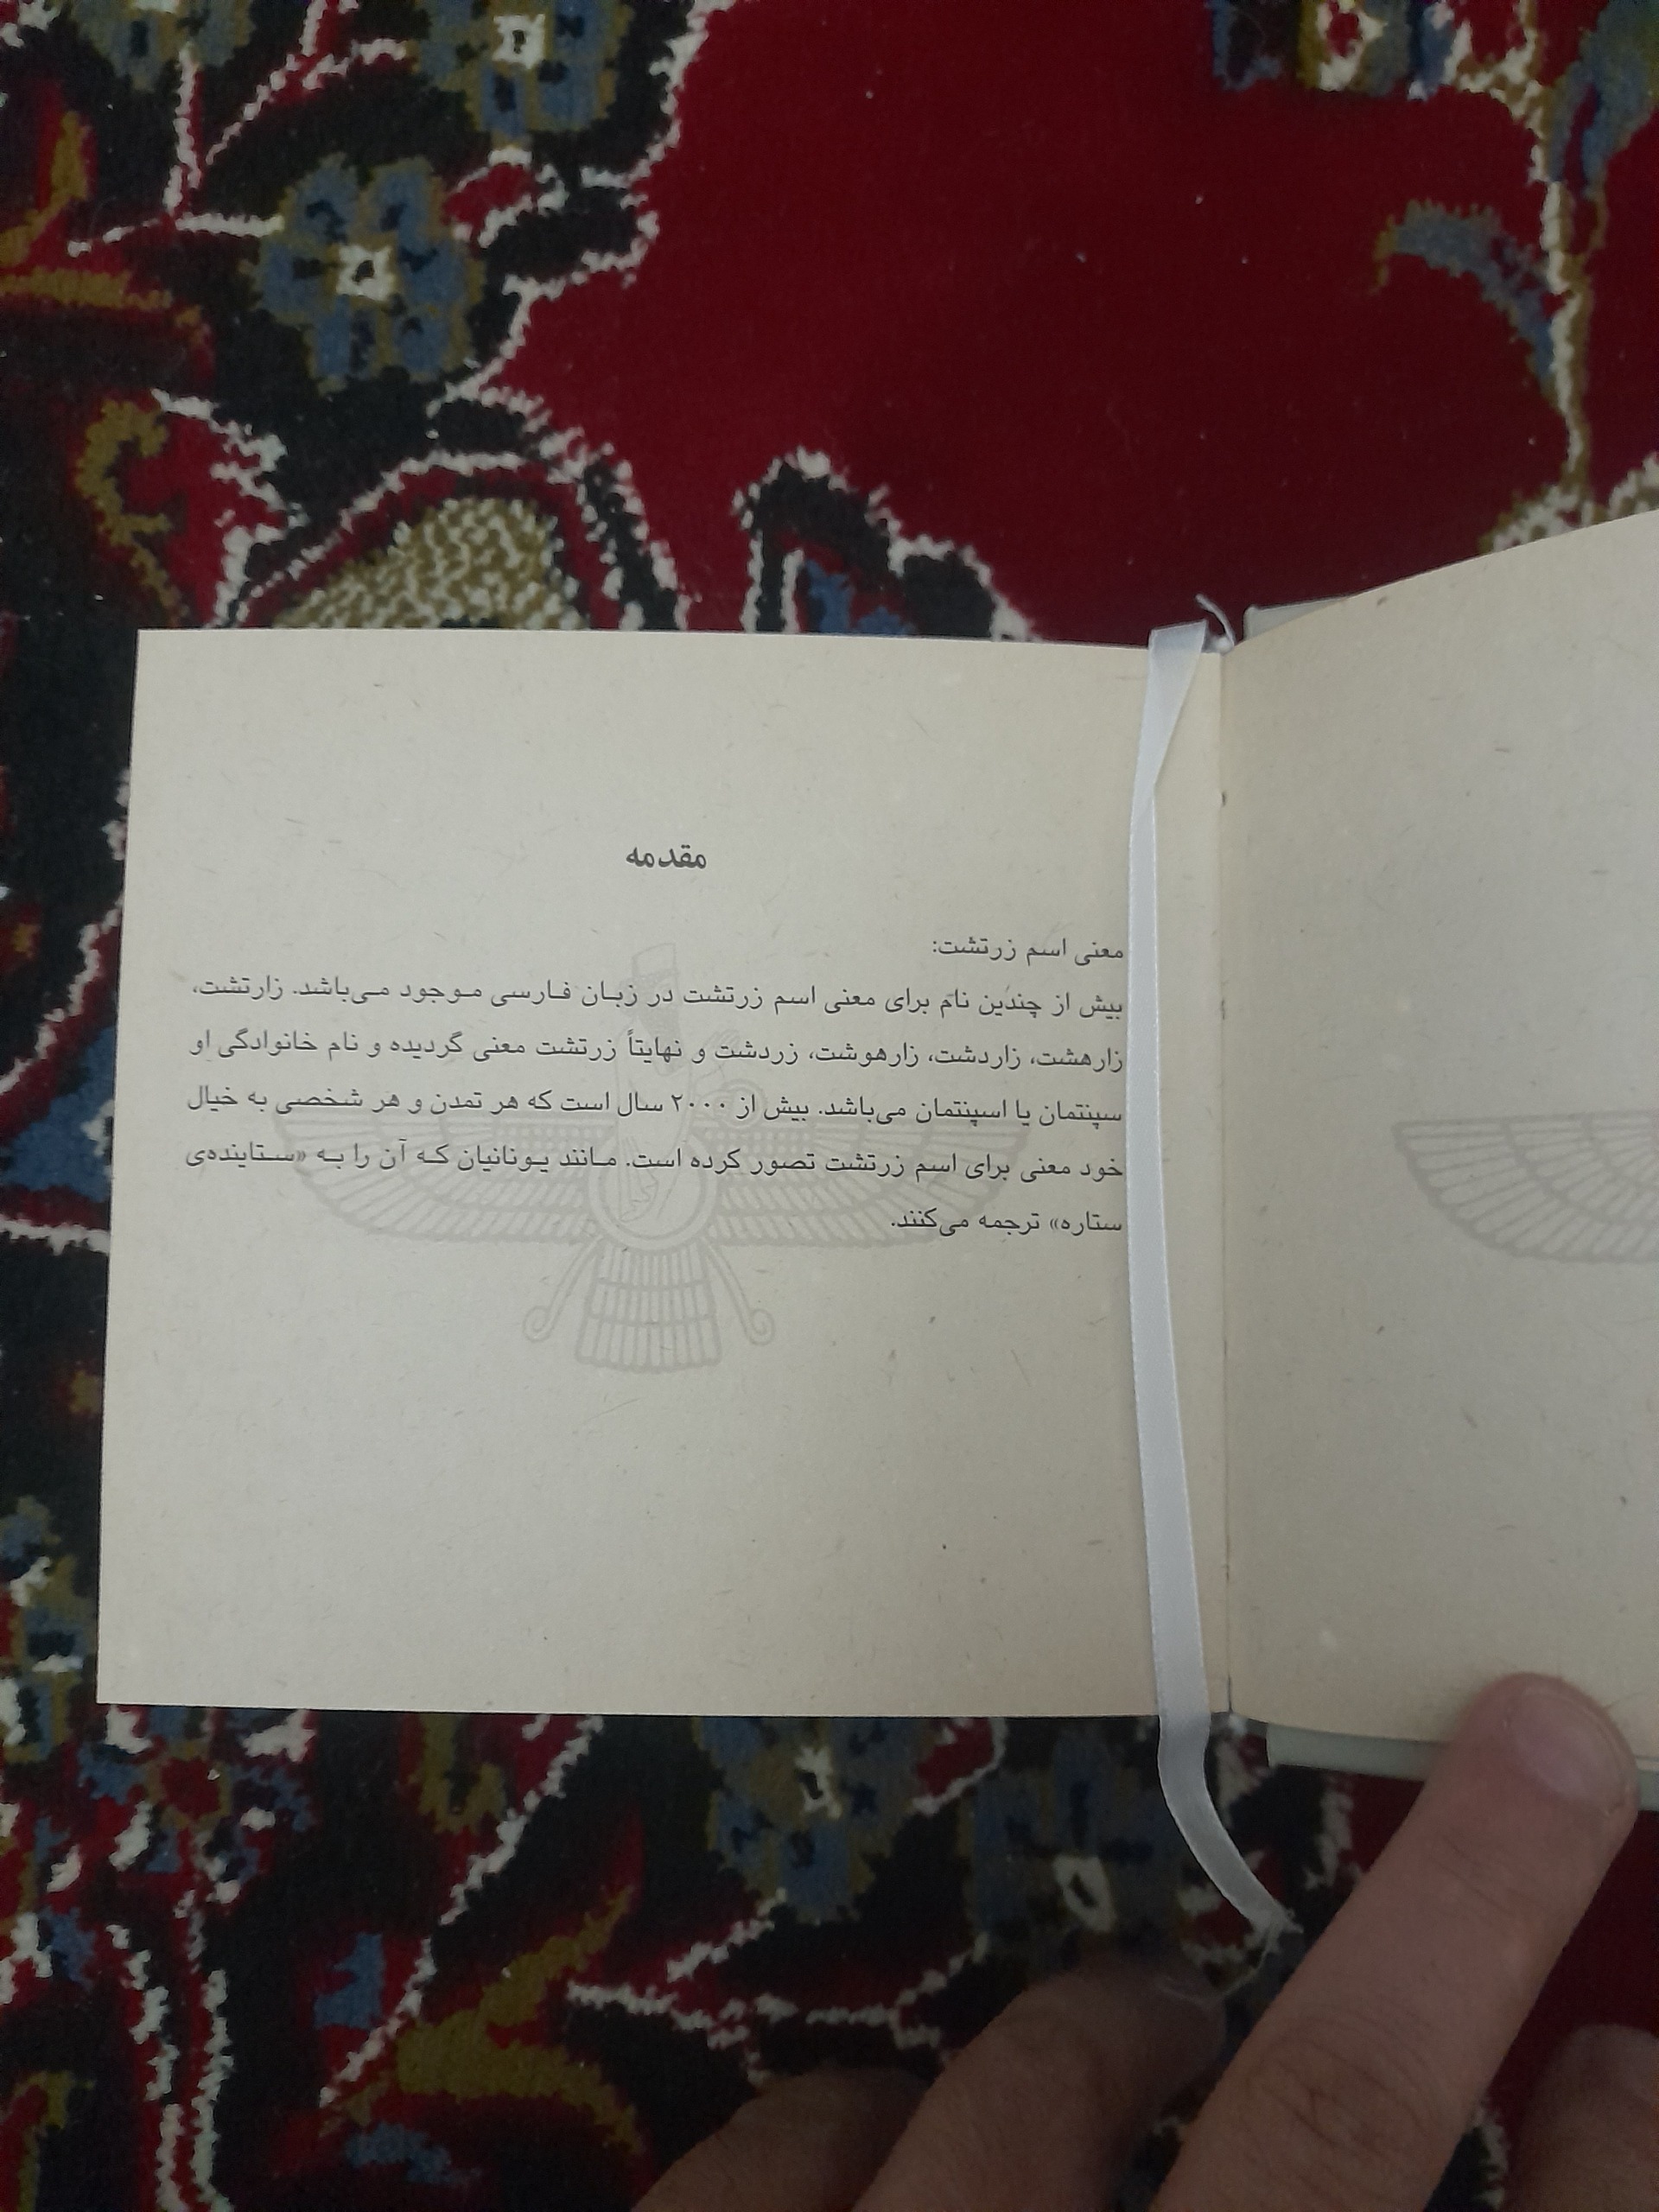 مقدمه
معنی اسم زرتشت:
بیش از چندین نام برای معنی اسم زرتشت در زبان فارسی موجود می‌باشد. زارتشت،
زارهشت، زاردشت، زارهوشت، زردشت و نهایتاً زرتشت معنی گردیده و نام خانوادگی او
سپنتمان یا اسپنتمان می‌باشد. بیش از ۲۰۰۰ سال است که هر تمدن و هر شخصی به خیال
خود معنی برای اسم زرتشت تصور کرده است. مانند یونانیان که آن را به «ستاینده‌ی
ستاره» ترجمه می‌کنند.